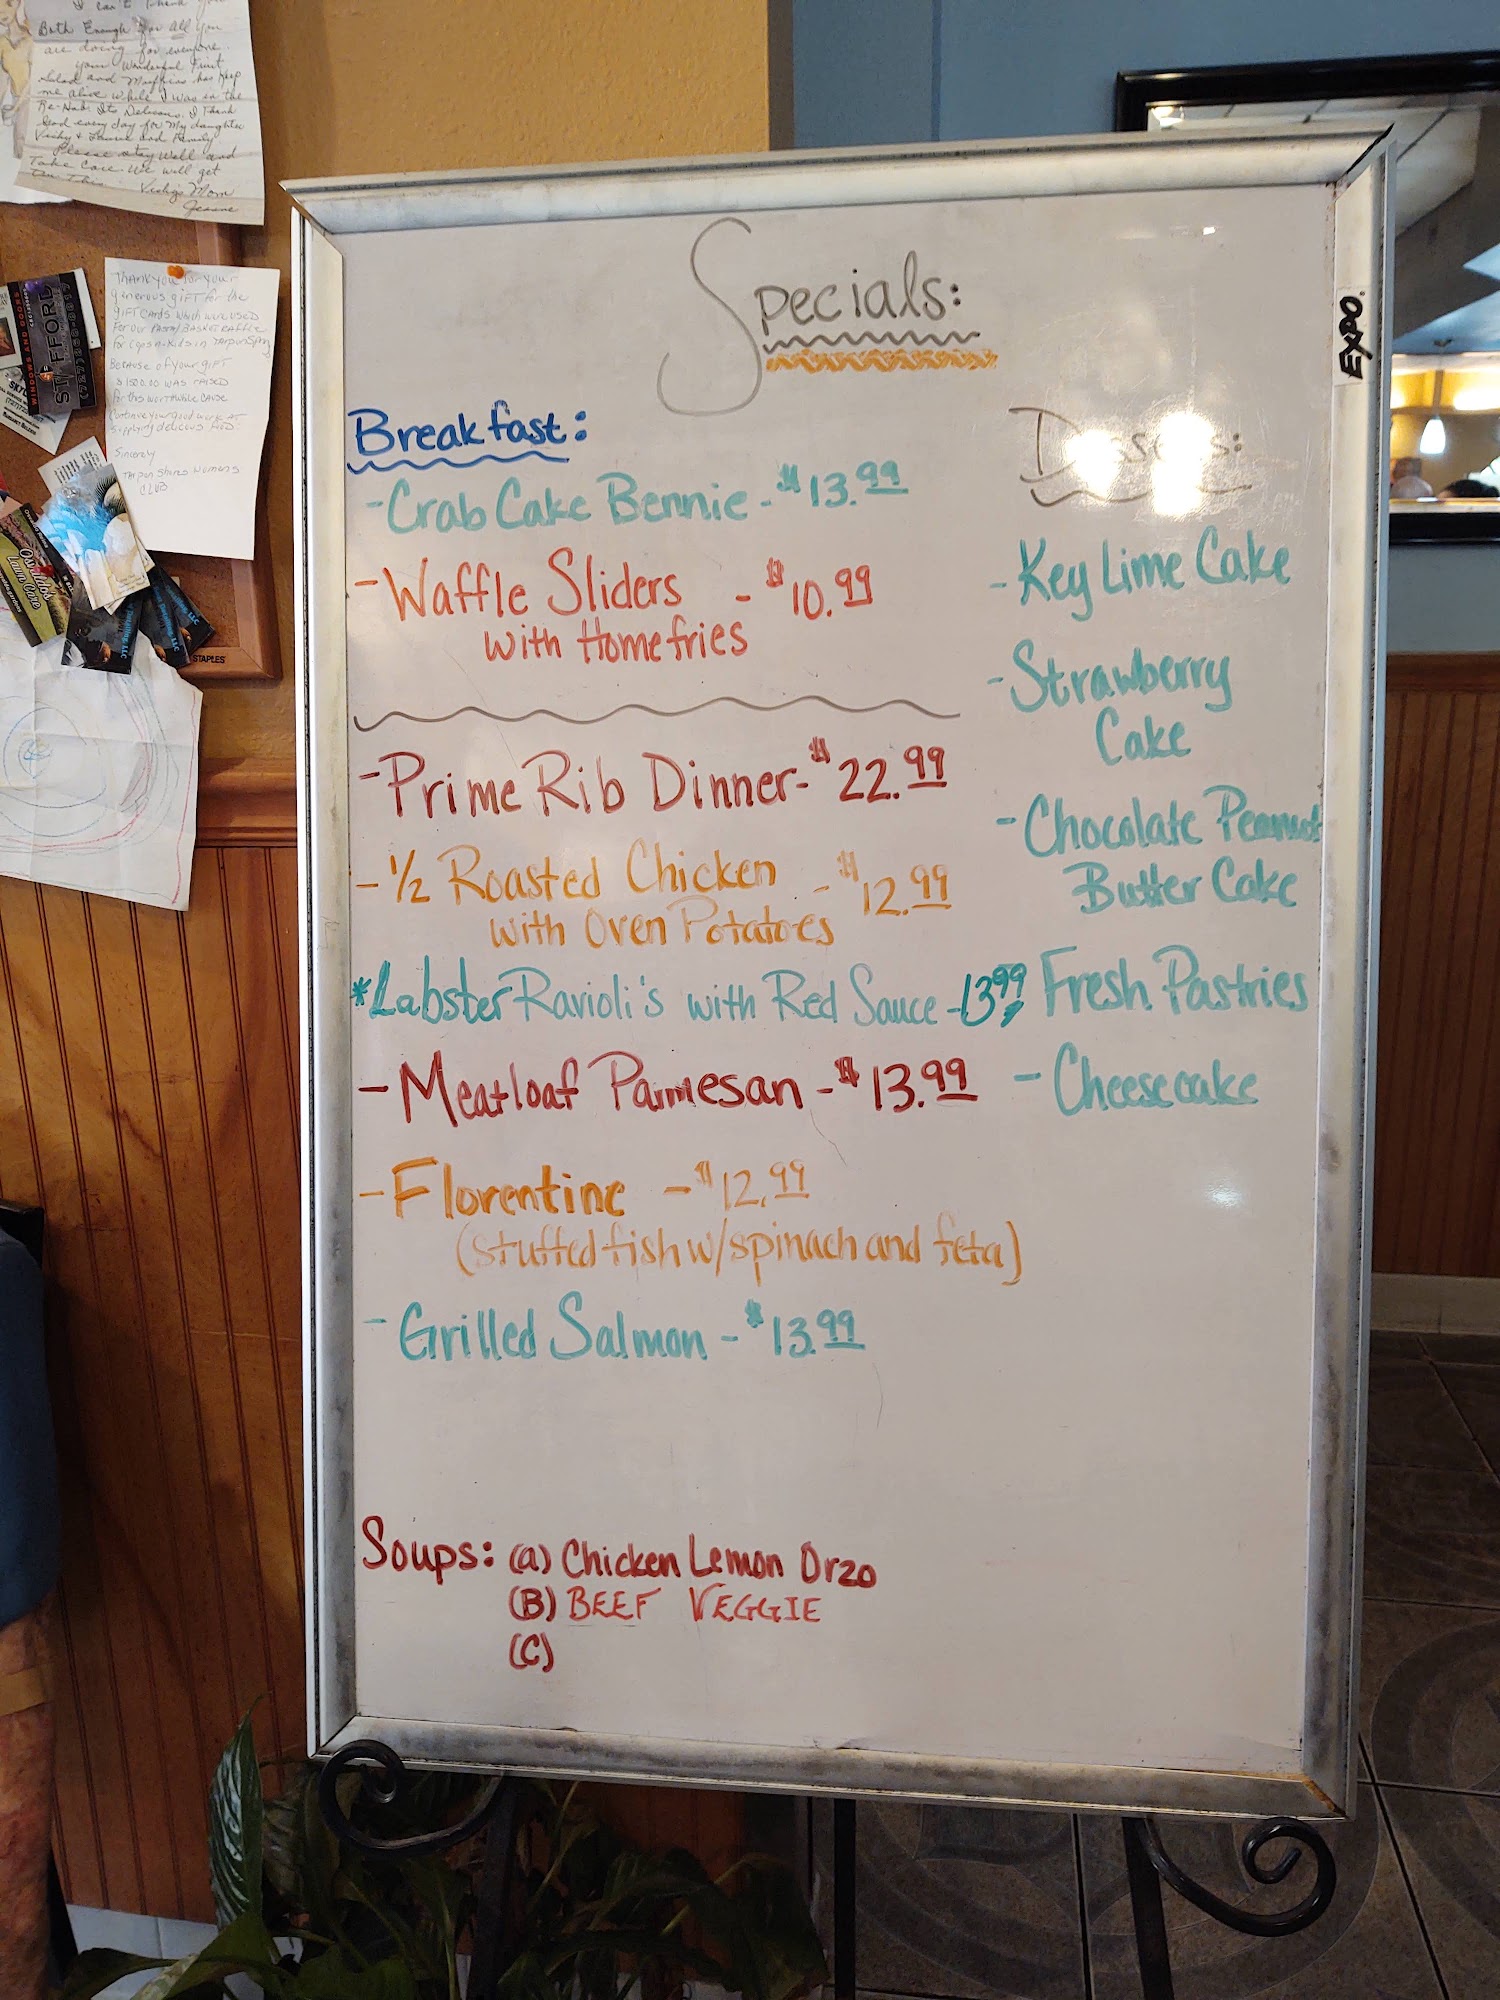 I can't thank you
Both Enough for all you
are doing for everyone.
your Wonderful Fruit
Salad and Muffins has kep
me alive while I was in the
Re-Hab. Its Delicious. I Thank
God every day for my daughter
Vicky & Laurie and Family
Please stay Well and
Take Care. We will get
Thru This. Vicky's Mom
Jessie
THANK YOU for your
generous gift for the
gift cards which were used
for our PASTA/BASKET RAFFLE
for Cops n. Kids in Tarpon Spring
Because of your gift
$1500.00 was raised
for this worthwhile cause
Continue your good work at
supplying delicious food.
Sincerely
Tarpon Shores Womens
Club
STAFFORD
WINDOWS AND DOORS
Lawn Care
STAPLES
EXPO.
Specials:
Breakfast:
-Crab Cake Bennie - $13.99
-Waffle Sliders - $10.99
with Homefries
-Prime Rib Dinner- $22.99
-1/2 Roasted Chicken - $12.99
with Oven Potatoes
*Labster Ravioli's with Red Sauce -13.99
-Meatloaf Parmesan -$13.99
-Florentine -$12.99
(Stuffed fish w/spinach and feta)
-Grilled Salmon -$13.99
Desserts:
-Key Lime Cake
-Strawberry
Cake
-Chocolate Peanut
Butter Cake
Fresh Pastries
-Cheesecake
Soups: (a) Chicken Lemon Orzo
(B) BEEF VEGGIE
(C)